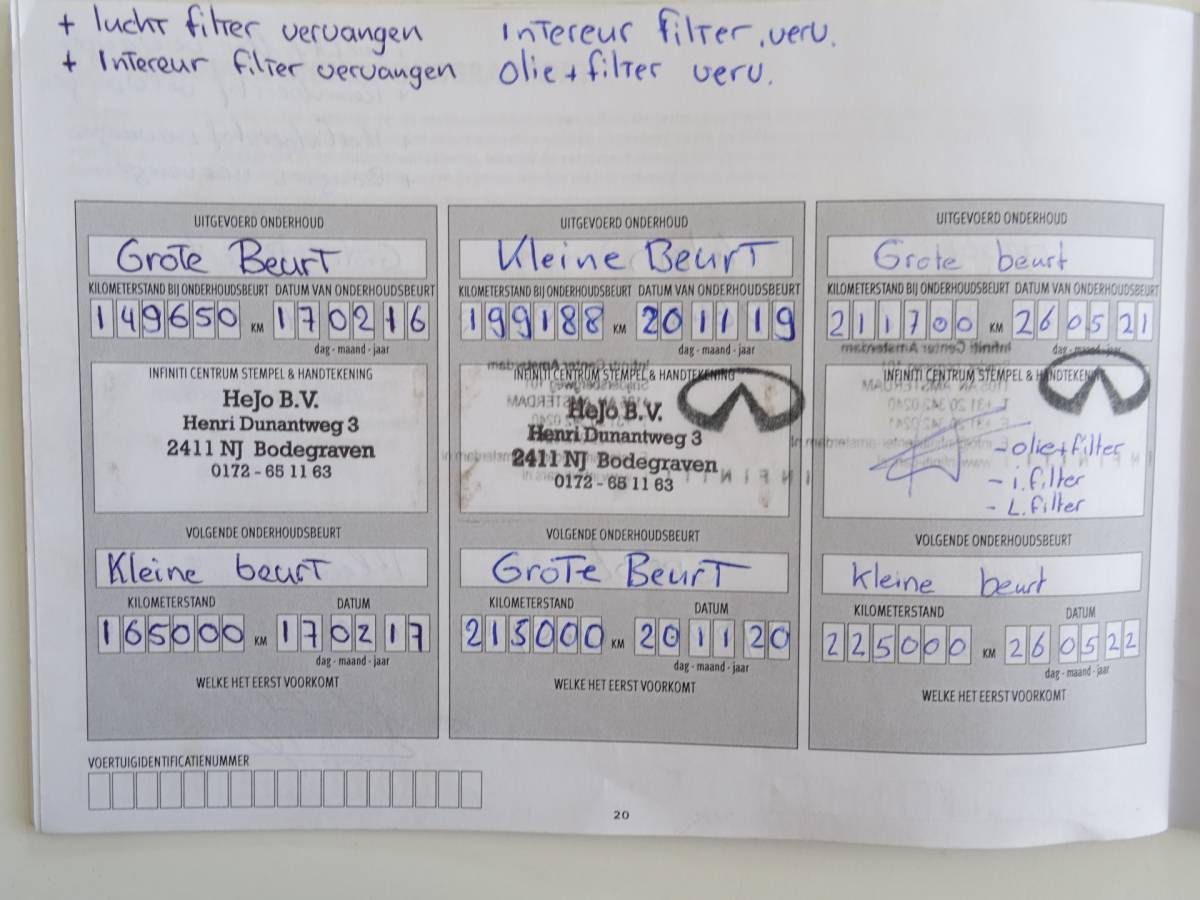 + lucht filter vervangen
+ Intereur filter vervangen
Intereur filter verv.
olie + filter verv.
UITGEVOERD ONDERHOUD
Grote Beurt
KILOMETERSTAND BIJ ONDERHOUDSBEURT DATUM VAN ONDERHOUDSBEURT
149650 KM 170216
dag - maand - jaar
INFINITI CENTRUM STEMPEL & HANDTEKENING
HeJo B.V.
Henri Dunantweg 3
2411 NJ Bodegraven
0172 - 65 11 63
VOLGENDE ONDERHOUDSBEURT
Kleine beurt
KILOMETERSTAND DATUM
165000 KM 170217
dag - maand - jaar
WELKE HET EERST VOORKOMT
UITGEVOERD ONDERHOUD
Kleine Beurt
KILOMETERSTAND BIJ ONDERHOUDSBEURT DATUM VAN ONDERHOUDSBEURT
199188 KM 201119
dag - maand - jaar
INFINITI CENTRUM STEMPEL & HANDTEKENING
HeJo B.V.
Henri Dunantweg 3
2411 NJ Bodegraven
0172 - 65 11 63
VOLGENDE ONDERHOUDSBEURT
Grote Beurt
KILOMETERSTAND DATUM
215000 KM 201120
dag - maand - jaar
WELKE HET EERST VOORKOMT
UITGEVOERD ONDERHOUD
Grote beurt
KILOMETERSTAND BIJ ONDERHOUDSBEURT DATUM VAN ONDERHOUDSBEURT
211700 KM 260521
dag - maand - jaar
INFINITI CENTRUM STEMPEL & HANDTEKENING
- olie+filter
- i.filter
- L.filter
VOLGENDE ONDERHOUDSBEURT
kleine beurt
KILOMETERSTAND DATUM
225000 KM 260522
dag - maand - jaar
WELKE HET EERST VOORKOMT
VOERTUIGIDENTIFICATIENUMMER
20